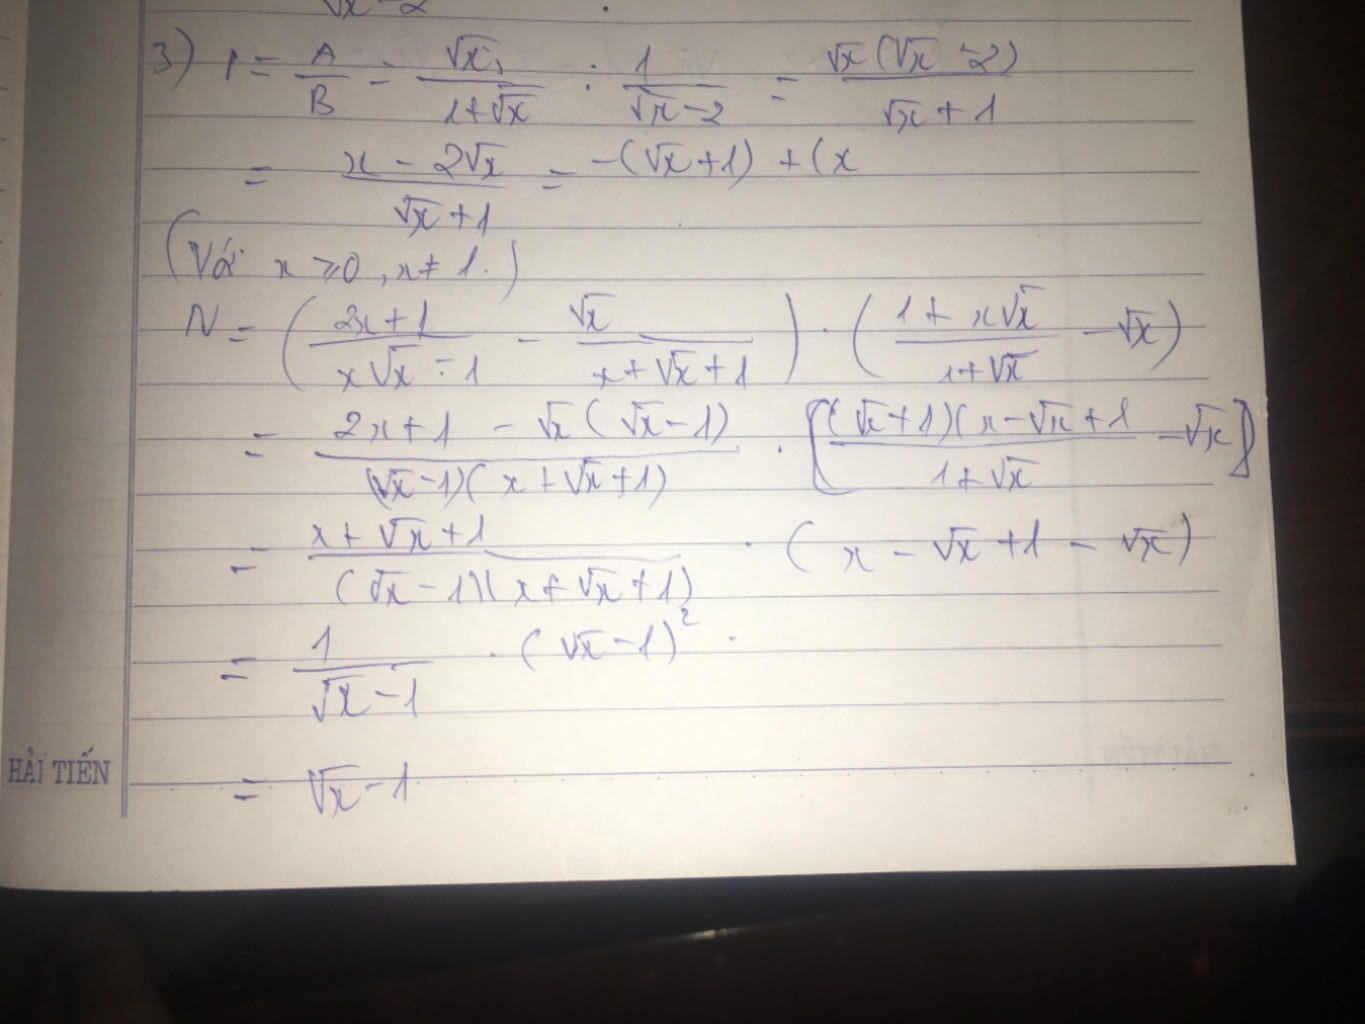 √x-2
3) P = A/B = √x/(1+√x) : 1/(√x-2) = √x(√x-2)/(√x+1)
= (x-2√x)/(√x+1) = -(√x+1)+(x
(Với x ⩾ 0, x ≠ 1.)
N = ((2x+1)/(x√x-1) - √x/(x+√x+1)) · ((1+x√x)/(1+√x) - √x)
= (2x+1-√x(√x-1))/((√x-1)(x+√x+1)) · [((√x+1)(x-√x+1)/(1+√x) - √x]
= (x+√x+1)/((√x-1)(x+√x+1)) · (x-√x+1-√x)
= 1/(√x-1) · (√x-1)² .
= √x-1
HẢI TIẾN